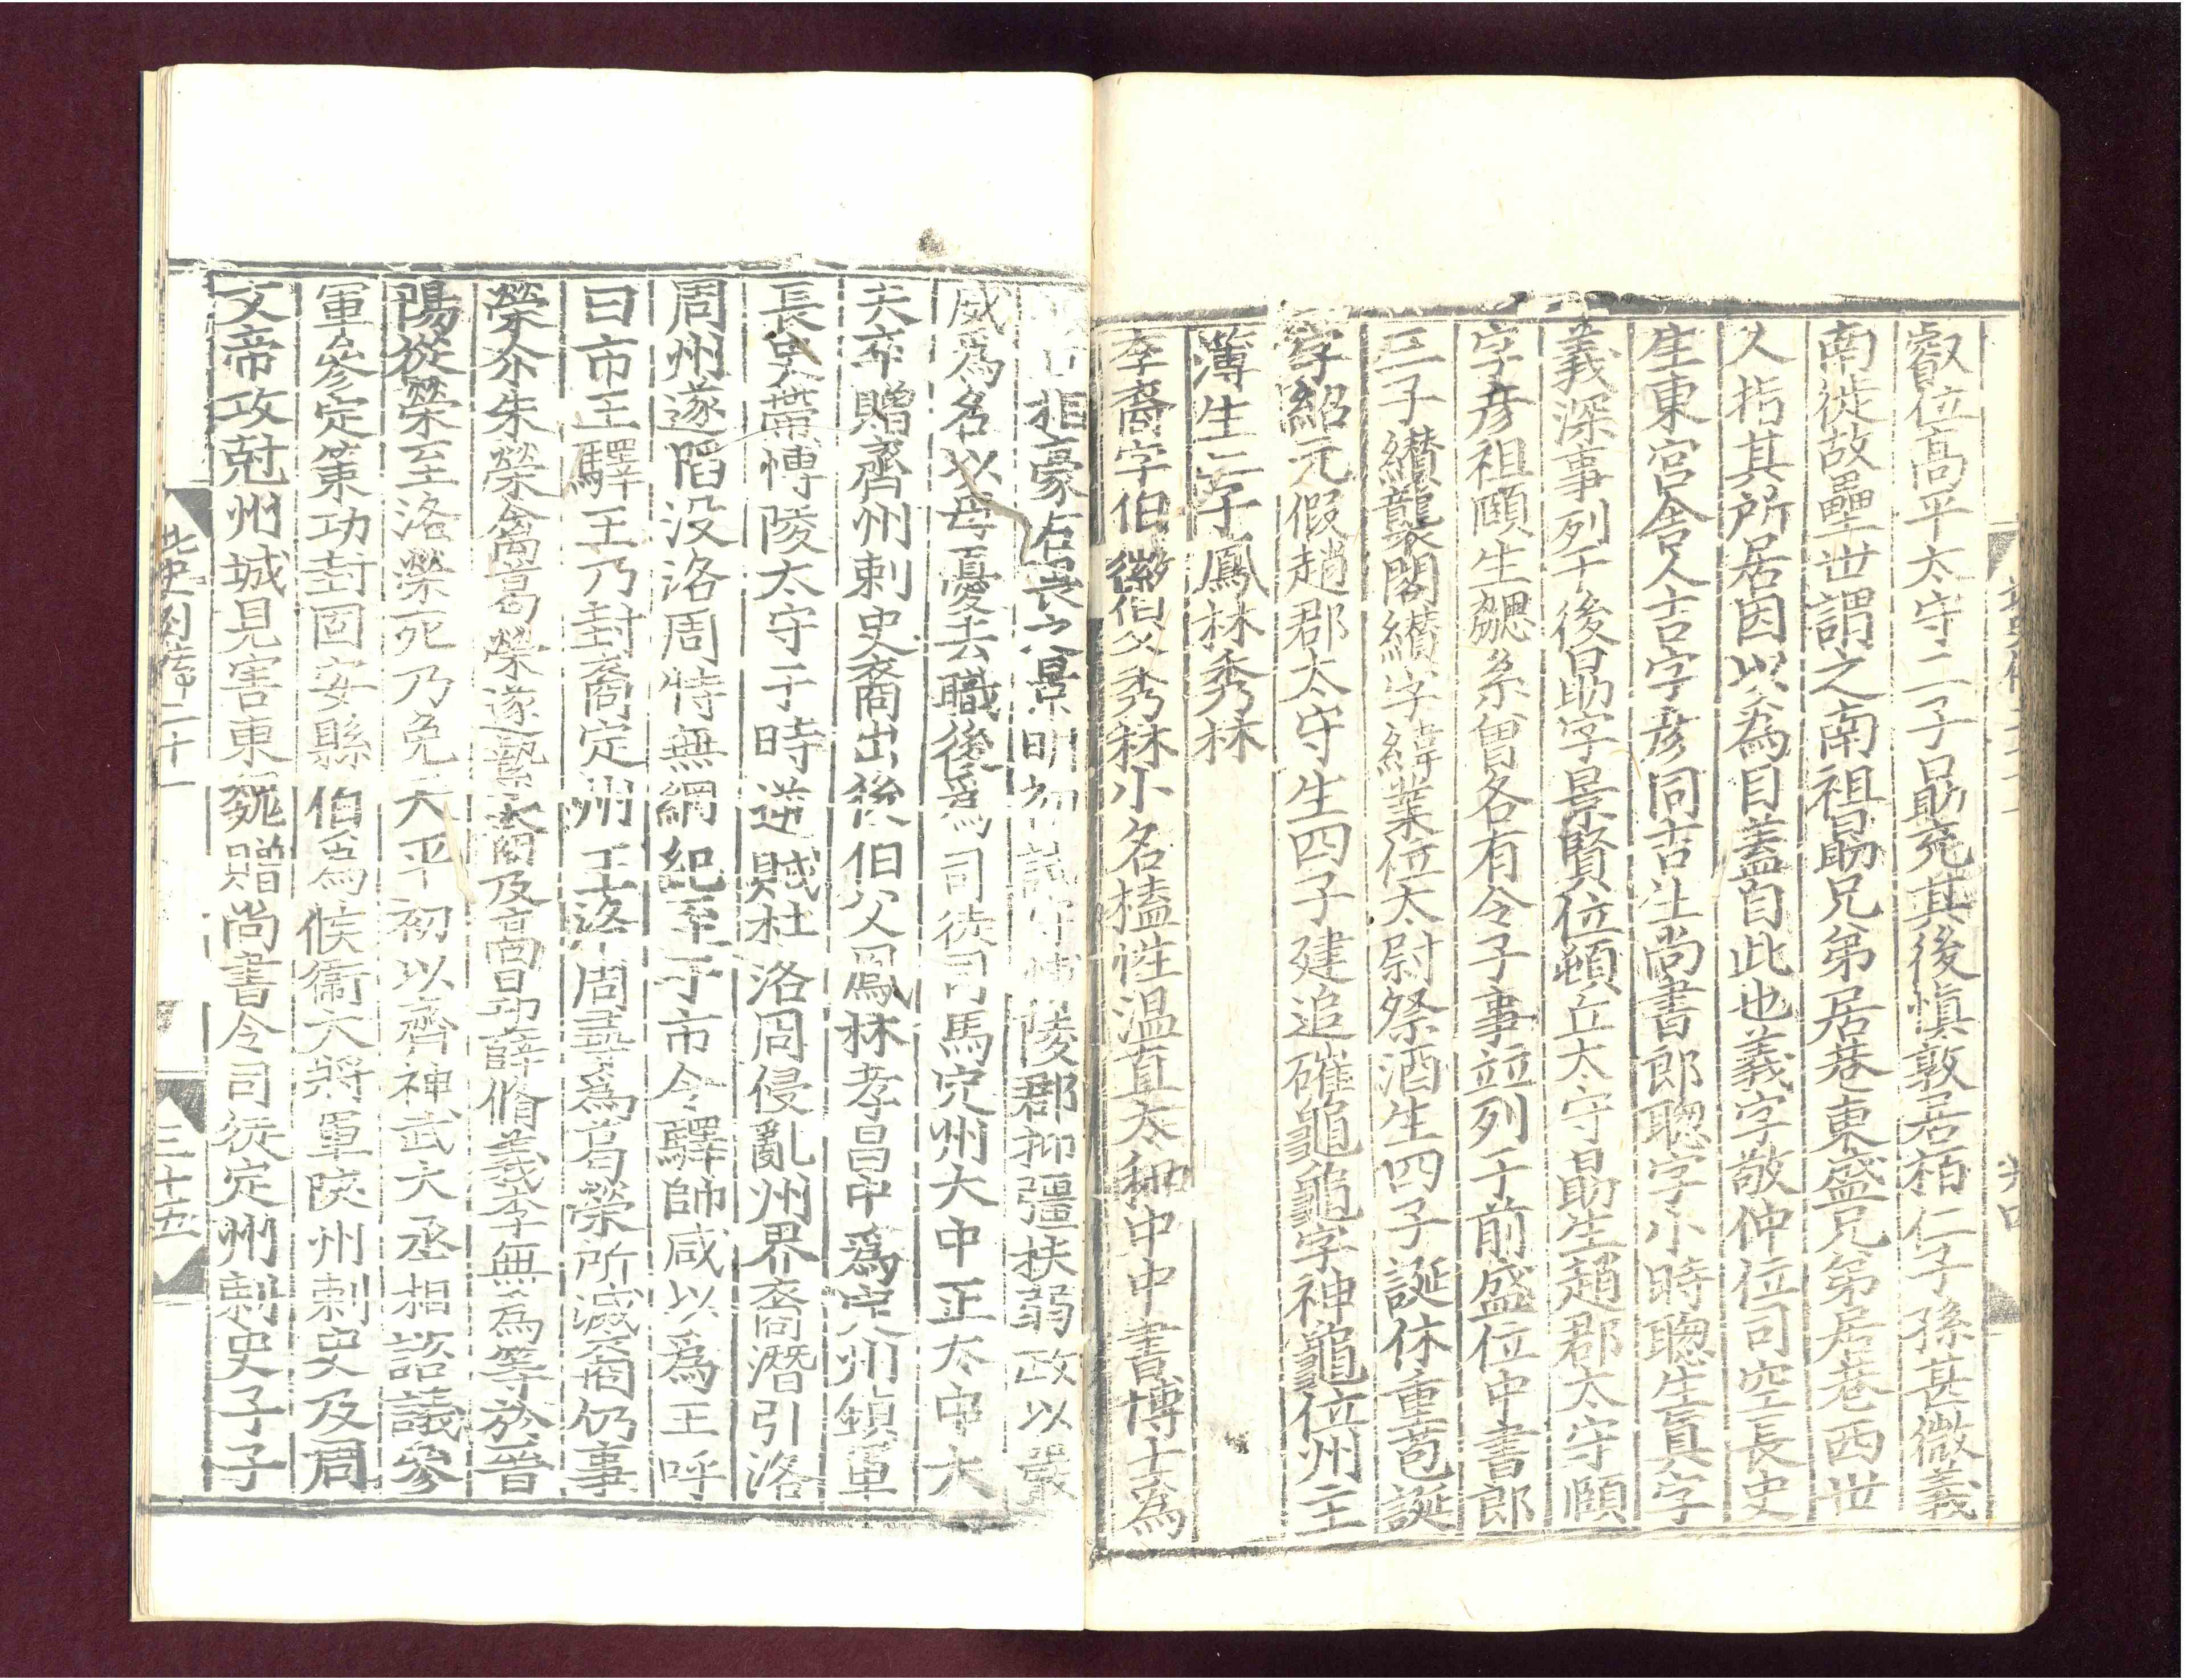 叡位高平太守二子勗兗其後愼敦居栢仁子孫甚微義
南徙故壘世謂之南祖勗兄弟居巷東盛兄弟居巷西世
人指其所居因以爲目蓋自此也義字敬仲位司空長史
生東宮舍人吉字彦同吉生尚書郎聦字小時聦生眞字
義深事列于後勗字景賢位頓丘太守勗生趙郡太守頤
字彦祖頤生勰系曾各有令子事竝列于前盛位中書郎
三子纘襲閣纘字緯業位太尉祭酒生四子誕休重苞誕
字紹元假趙郡太守生四子建追碓龜龜字神龜位州主
簿生二子鳳林秀林
李裔字伯徽伯父秀林小名榼性温直太和中中書博士爲
豪右畏之景明初試守 陵郡抑彊扶弱政以嚴
威爲名以母憂去職後爲司徒司馬定州大中正太中大
夫卒贈齊州刺史裔出後伯父鳳林孝昌中爲定州鎭軍
長史帶博陵太守于時逆賊杜洛周侵亂州界裔潛引洛
周州遂陷没洛周特無綱紀至于市令驛帥咸以爲王呼
曰市王驛王乃封裔定州王洛周尋爲葛榮所滅裔仍事
榮尒朱榮禽葛榮遂縶裔及高昂薛脩義李無爲等於晉
陽從榮至洛榮死乃免天平初以齊神武大丞相諮議參
軍參定策功封固安縣伯爲候衞大將軍陝州刺史及周
文帝攻尅州城見害東魏贈尚書令司徒定州刺史子子
北史列傳二十一
三十五